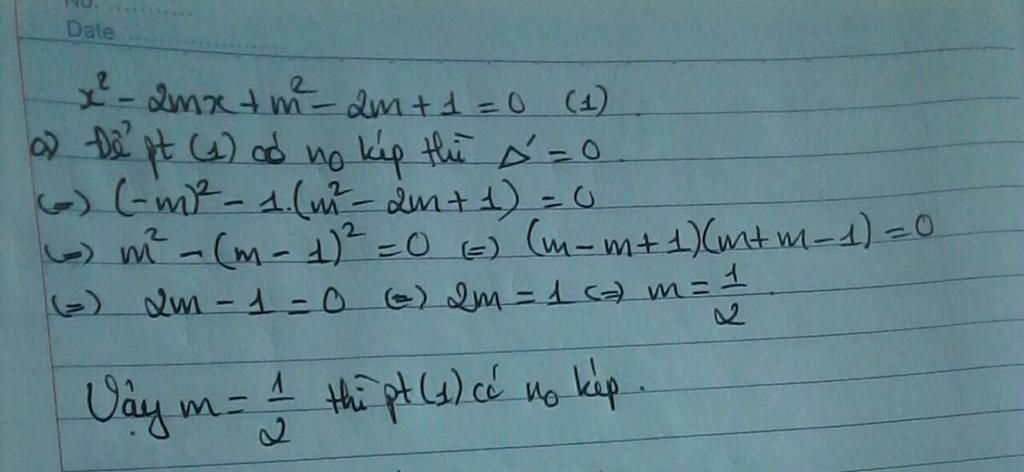 No.
Date
x² - 2mx + m² - 2m + 1 = 0 (1)
a) Để pt (1) có no kép thì Δ' = 0
(=) (-m)² - 1.(m² - 2m + 1) = 0
(=) m² - (m - 1)² = 0 (=) (m - m + 1)(m + m - 1) = 0
(=) 2m - 1 = 0 (=) 2m = 1 (=) m = 1/2
Vậy m = 1/2 thì pt (1) có no kép.